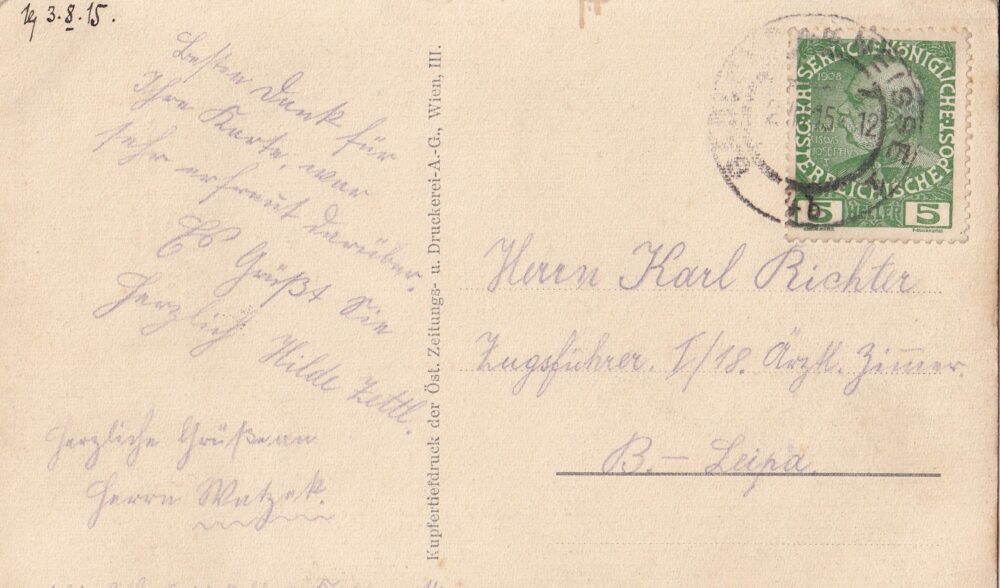 3.8.15.
Besten Dank für
Ihre Karte, war
sehr erfreut darüber.
Es Grüßt Sie
Herzlich Hilde Zettl.
Herzliche Grüße an
Herrn Watzek.
Kupfertiefdruck der Öst. Zeitungs- u. Druckerei-A.-G., Wien, III.
KAISERLICHE KÖNIGLICHE
ÖSTERREICHISCHE POST
1908
5 HELLER 5
15 12
Herrn Karl Richter
Zugsführer. I/18. Ärztl. Zimmer.
B. – Leipa.